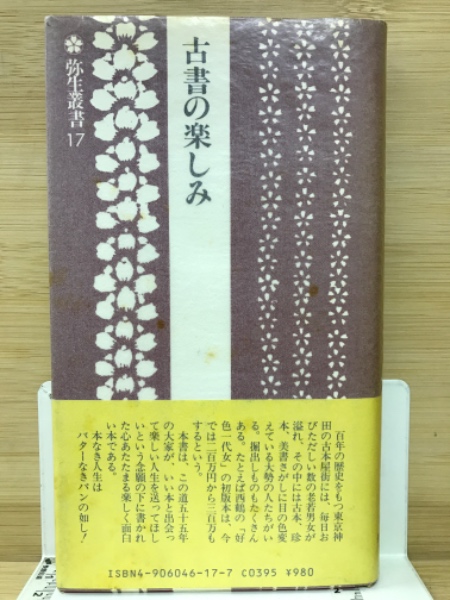 弥生叢書
17
古書の楽しみ
百年の歴史をもつ東京神
田の古本屋街には、毎日お
びただしい数の老若男女が
溢れ、その中には古本、珍
本、美書さがしに目の色変
えている大勢の人たちがい
る。掘出しものもたくさん
ある。たとえば西鶴の「好
色一代女」の初版本は、今
では二百万円から三百万も
するという。
本書は、この道五十五年
の大家が、いい本と出会っ
て楽しい人生を送ってほし
いという念願の下に書かれ
た心あたたまる楽しく面白
い本である。
本なき人生は
バターなきパンの如し!
ISBN4-906046-17-7 C0395 ¥980